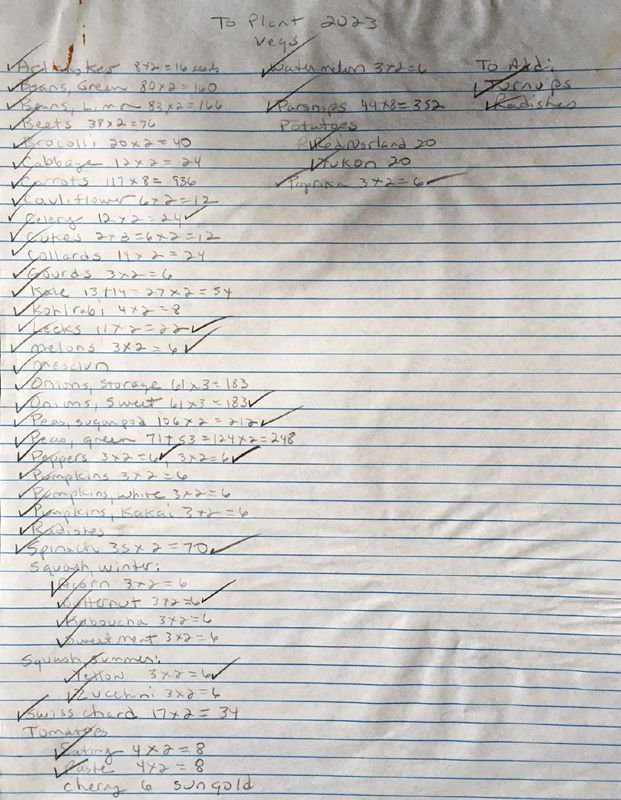 To Plant 2023
Vegs
Artichokes 8x2=16 seeds
Beans, Green 80x2=160
Beans, Lima 83x2=166
Beets 38x2=76
Brocolli 20x2=40
Cabbage 12x2=24
Carrots 117x8=936
Cauliflower 6x2=12
Celery 12x2=24
Cukes 2x3=6x2=12
Collards 14x2=24
Gourds 3x2=6
Kale 13+14=27x2=54
Kohlrabi 4x2=8
Leeks 11x2=22
Melons 3x2=6
Mesclun
Onions, Storage 61x3=183
Onions, Sweet 61x3=183
Peas, sugarpod 106x2=212
Peas, green 71+53=124x2=248
Peppers 3x2=6, 3x2=6
Pumpkins 3x2=6
Pumpkins, white 3x2=6
Pumpkins, Kakai 3x2=6
Radishes
Spinach 35x2=70
Squash, winter:
Acorn 3x2=6
Butternut 3x2=6
Kaboucha 3x2=6
Sweetmeat 3x2=6
Squash, summer:
Yellow 3x2=6
Zucchini 3x2=6
Swiss chard 17x2=34
Tomatoes
Eating 4x2=8
Paste 4x2=8
cherry 6 sungold
Watermelon 3x2=6
Parsnips 44x8=352
Potatoes
Red Norland 20
Yukon 20
Paprika 3x2=6
To Add:
Turnips
Radishes